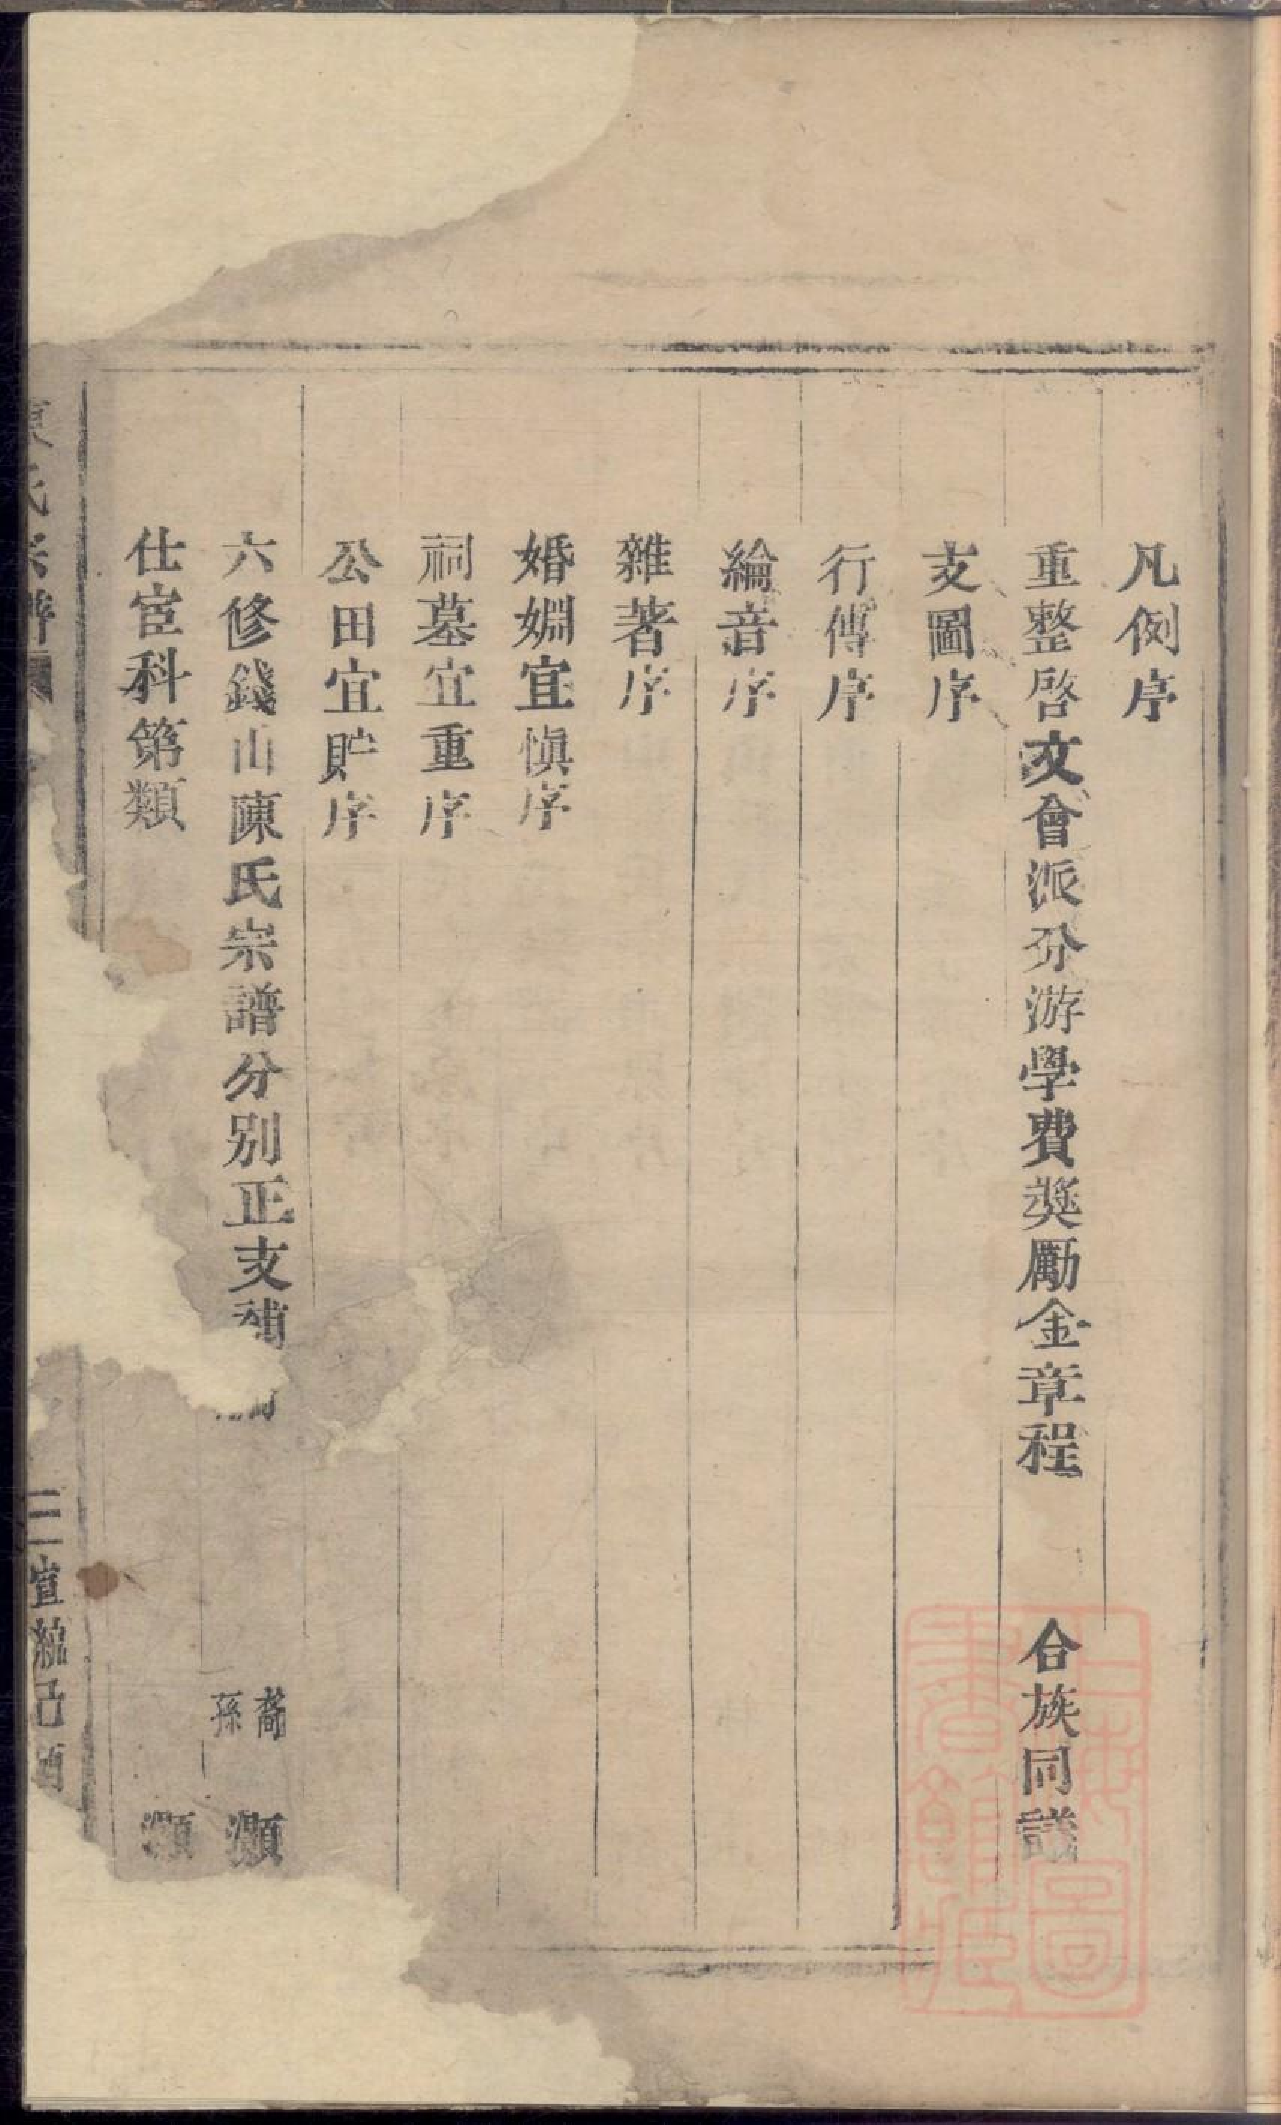 凡例序
重整啓文會派分游學費奬勵金章程　合族同議
支圖序
行傳序
綸音序
雜著序
婚婣宜慎序
祠墓宜重序
公田宜貯序
六修錢山陳氏宗譜分別正支補　裔孫　灝
仕宦科第類　灝
氏宗譜
三宣統己酉
上海圖書館藏